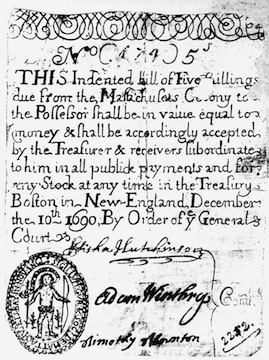 No (4740) 5s
THIS Indented Bill of Five Shillings
due from the Massachusets Colony to
the Possessor shall be in value equal to
money & shall be accordingly accepted
by the Treasurer & receivers subordinate
to him in all publick payments and for
any Stock at any time in the Treasury
Boston in New-England, December
the 10th 1690, By Order of ye General
Court
Elisha Hutchinson
Adam Winthrop
Timothy Thornton
Comtee